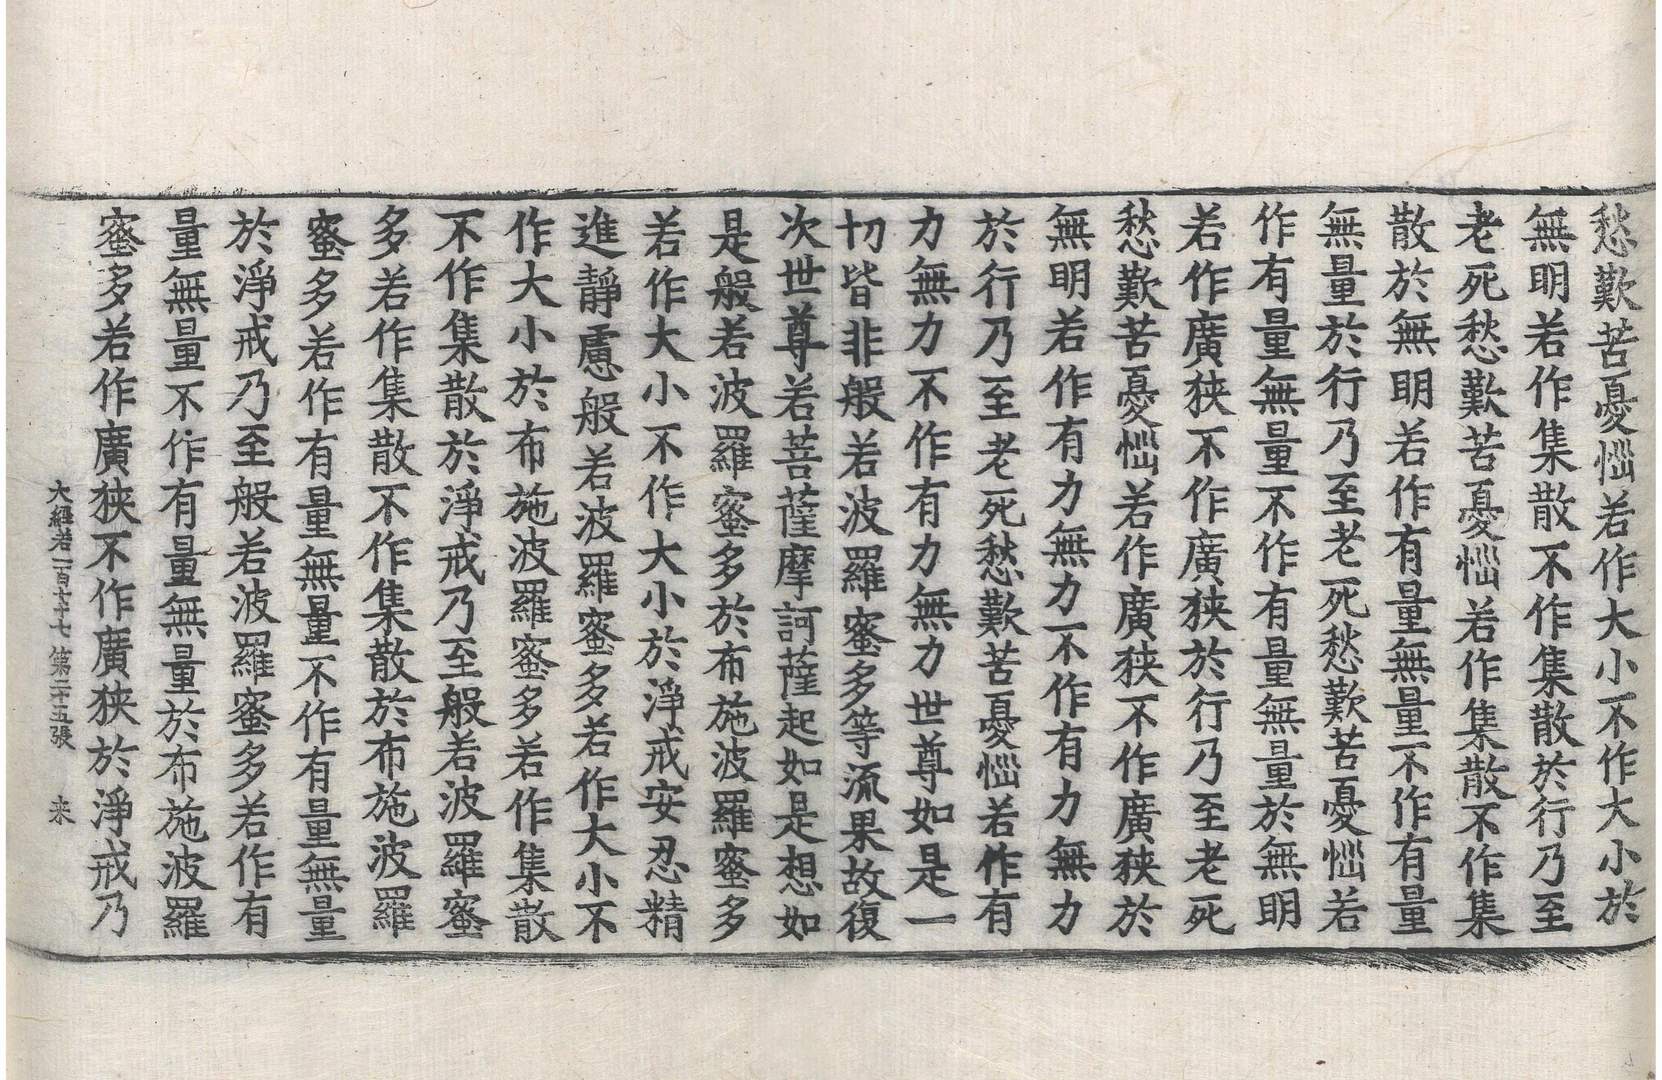 愁歎苦憂惱若作大小不作大小於
無明若作集散不作集散於行乃至
老死愁歎苦憂惱若作集散不作集
散於無明若作有量無量不作有量
無量於行乃至老死愁歎苦憂惱若
作有量無量不作有量無量於無明
若作廣狹不作廣狹於行乃至老死
愁歎苦憂惱若作廣狹不作廣狹於
無明若作有力無力不作有力無力
於行乃至老死愁歎苦憂惱若作有
力無力不作有力無力世尊如是一
切皆非般若波羅蜜多等流果故復
次世尊若菩薩摩訶薩起如是想如
是般若波羅蜜多於布施波羅蜜多
若作大小不作大小於淨戒安忍精
進靜慮般若波羅蜜多若作大小不
作大小於布施波羅蜜多若作集散
不作集散於淨戒乃至般若波羅蜜
多若作集散不作集散於布施波羅
蜜多若作有量無量不作有量無量
於淨戒乃至般若波羅蜜多若作有
量無量不作有量無量於布施波羅
蜜多若作廣狹不作廣狹於淨戒乃
大般若一百七十七 第二十五張 来